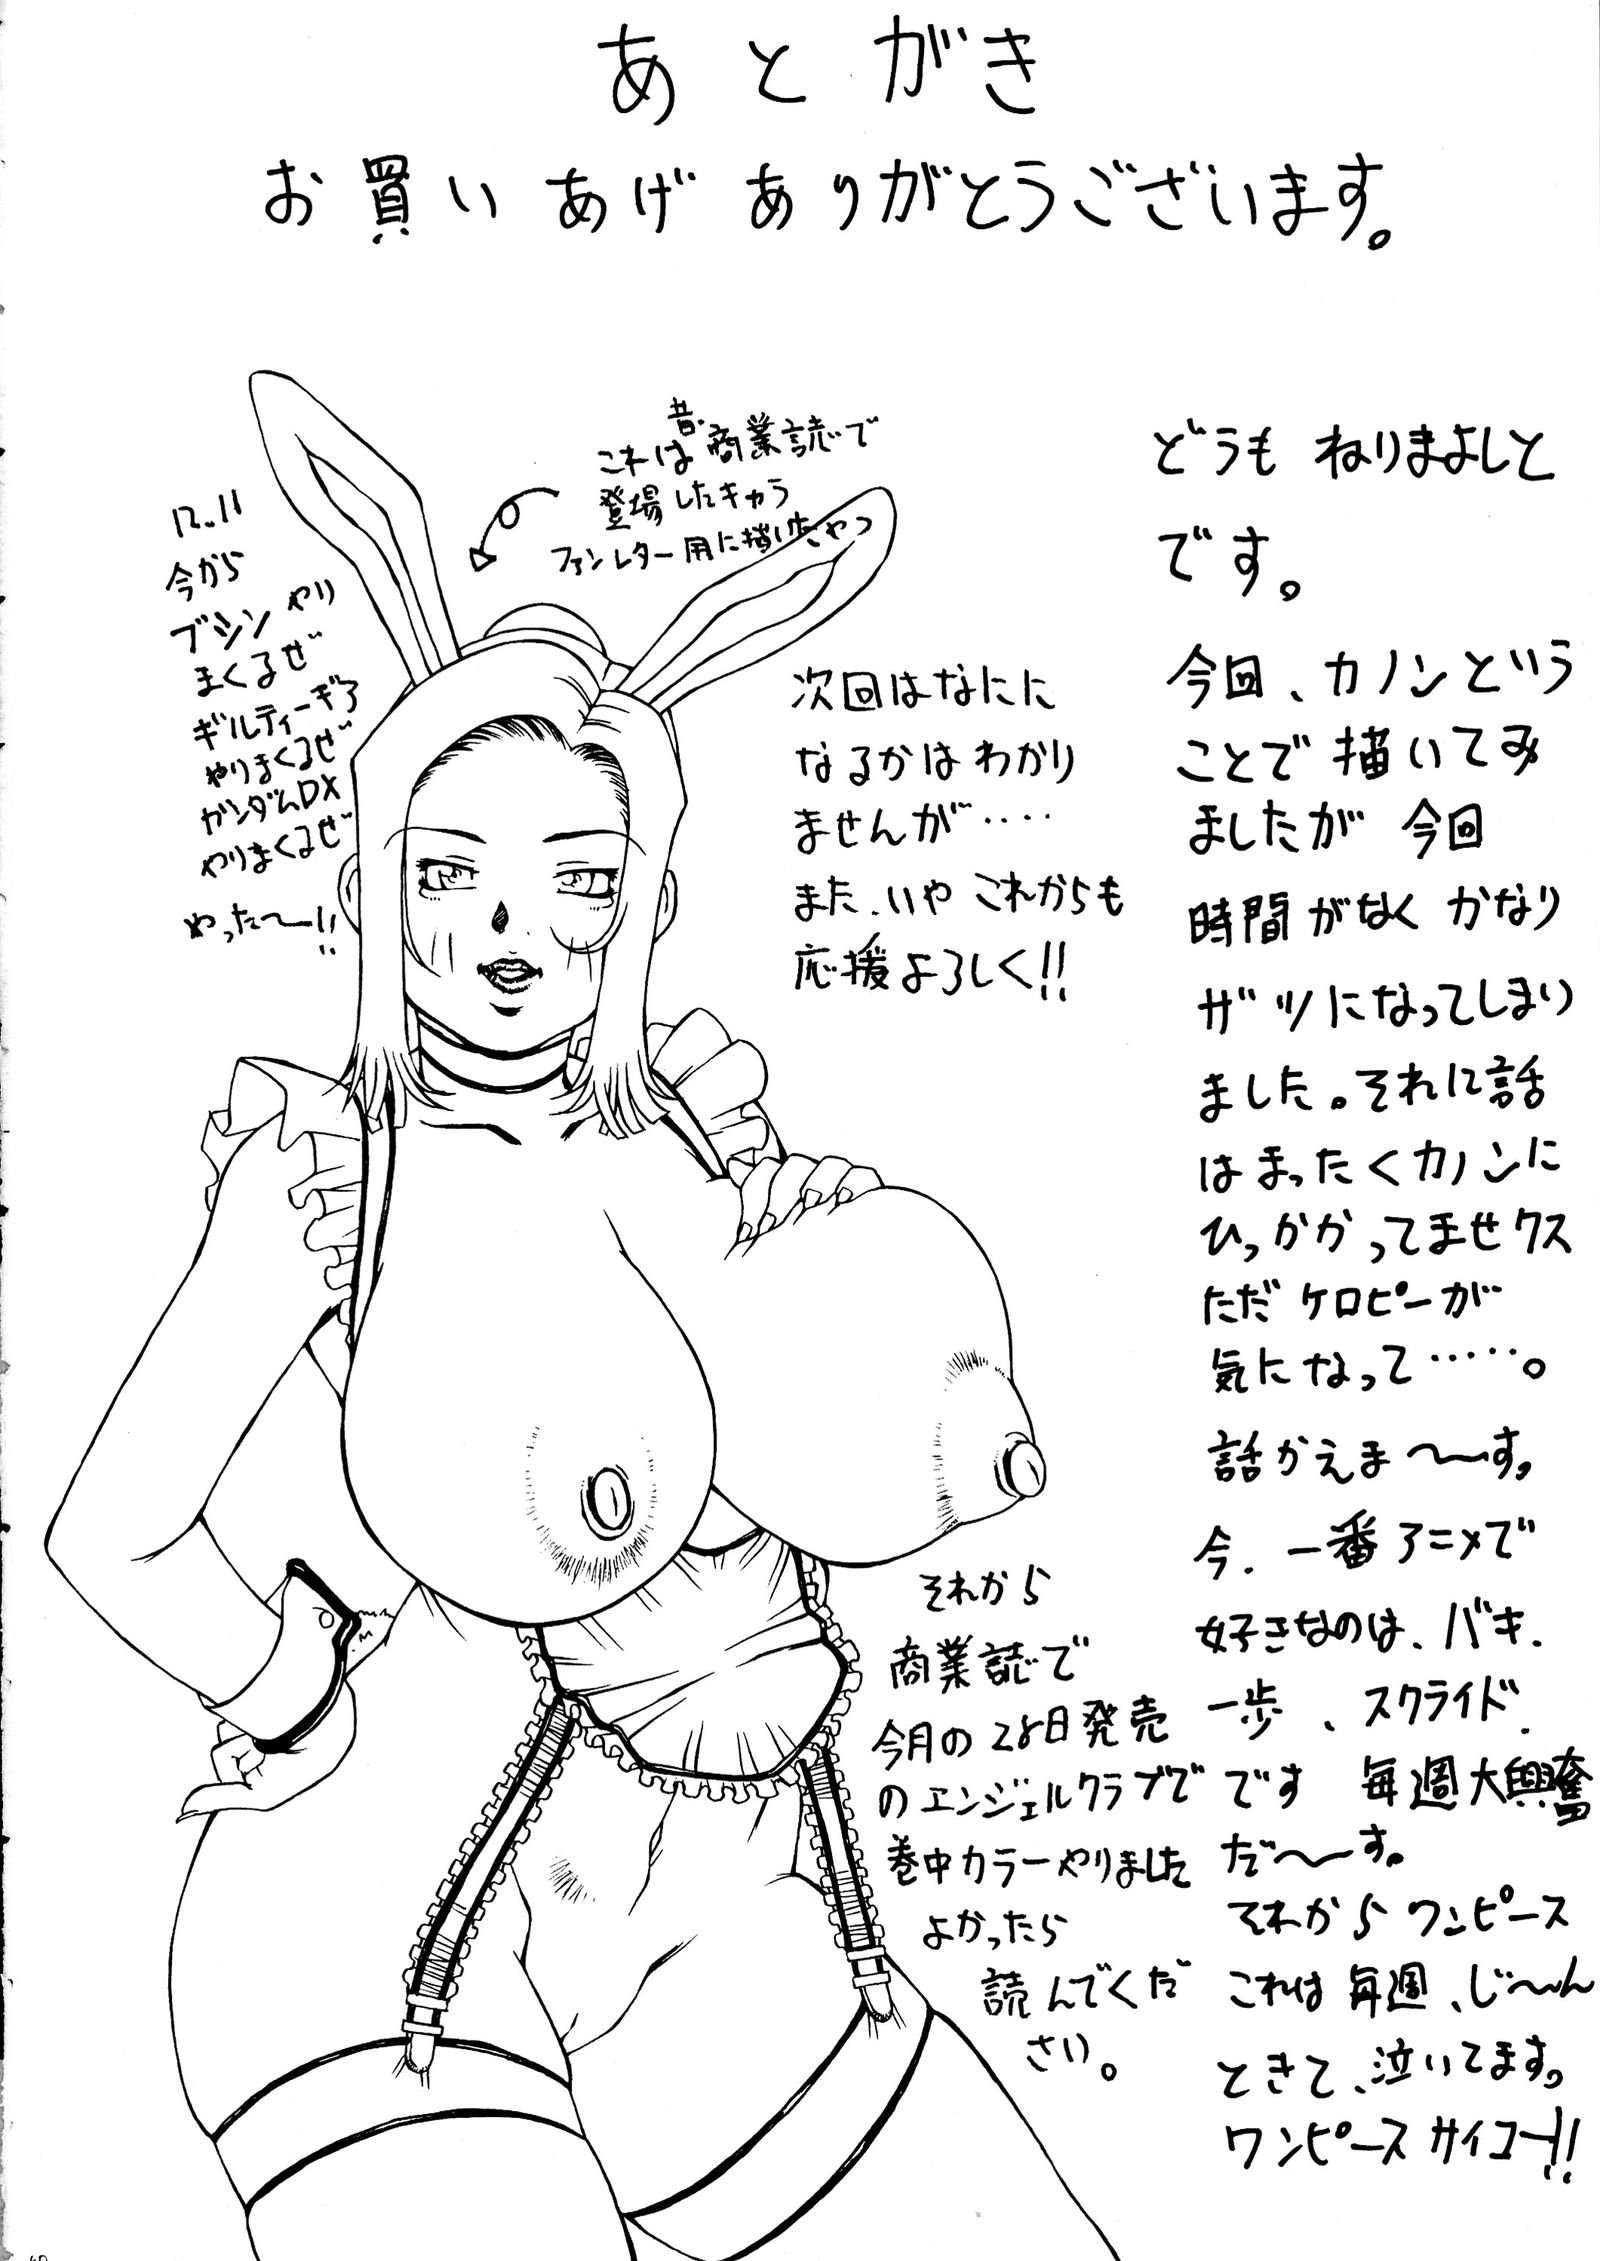 あとがき
お買いあげありがとうございます。
どうも ねりまよしと
です。
今回、カノンという
ことで描いてみ
ましたが 今回
時間がなく かなり
ザツになってしまい
ました。それに話
はまったくカノンに
ひっかかってませクス
ただケロピーが
気になって……。
話かえま〜〜す。
今、一番アニメで
好きなのは、バキ、
一歩、スクライド、
です 毎週大興奮
だ〜〜す。
それからワンピース
これは毎週、じ〜〜ん
ときて、泣いてます。
ワンピースサイコー!!
昔
これは商業誌で
登場したキャラ
ファンレター用に描いたやつ
次回はなにに
なるかはわかり
ませんが‥‥
また、いや これからも
応援よろしく!!
12.11
今から
ブシンやり
まくるぜ
ギルティーギア
やりまくるぜ
ガンダムDX
やりまくるぜ
やった〜!!
それから
商業誌で
今月の28日発売
のエンジェルクラブで
巻中カラーやりました
よかったら
読んでくだ
さい。